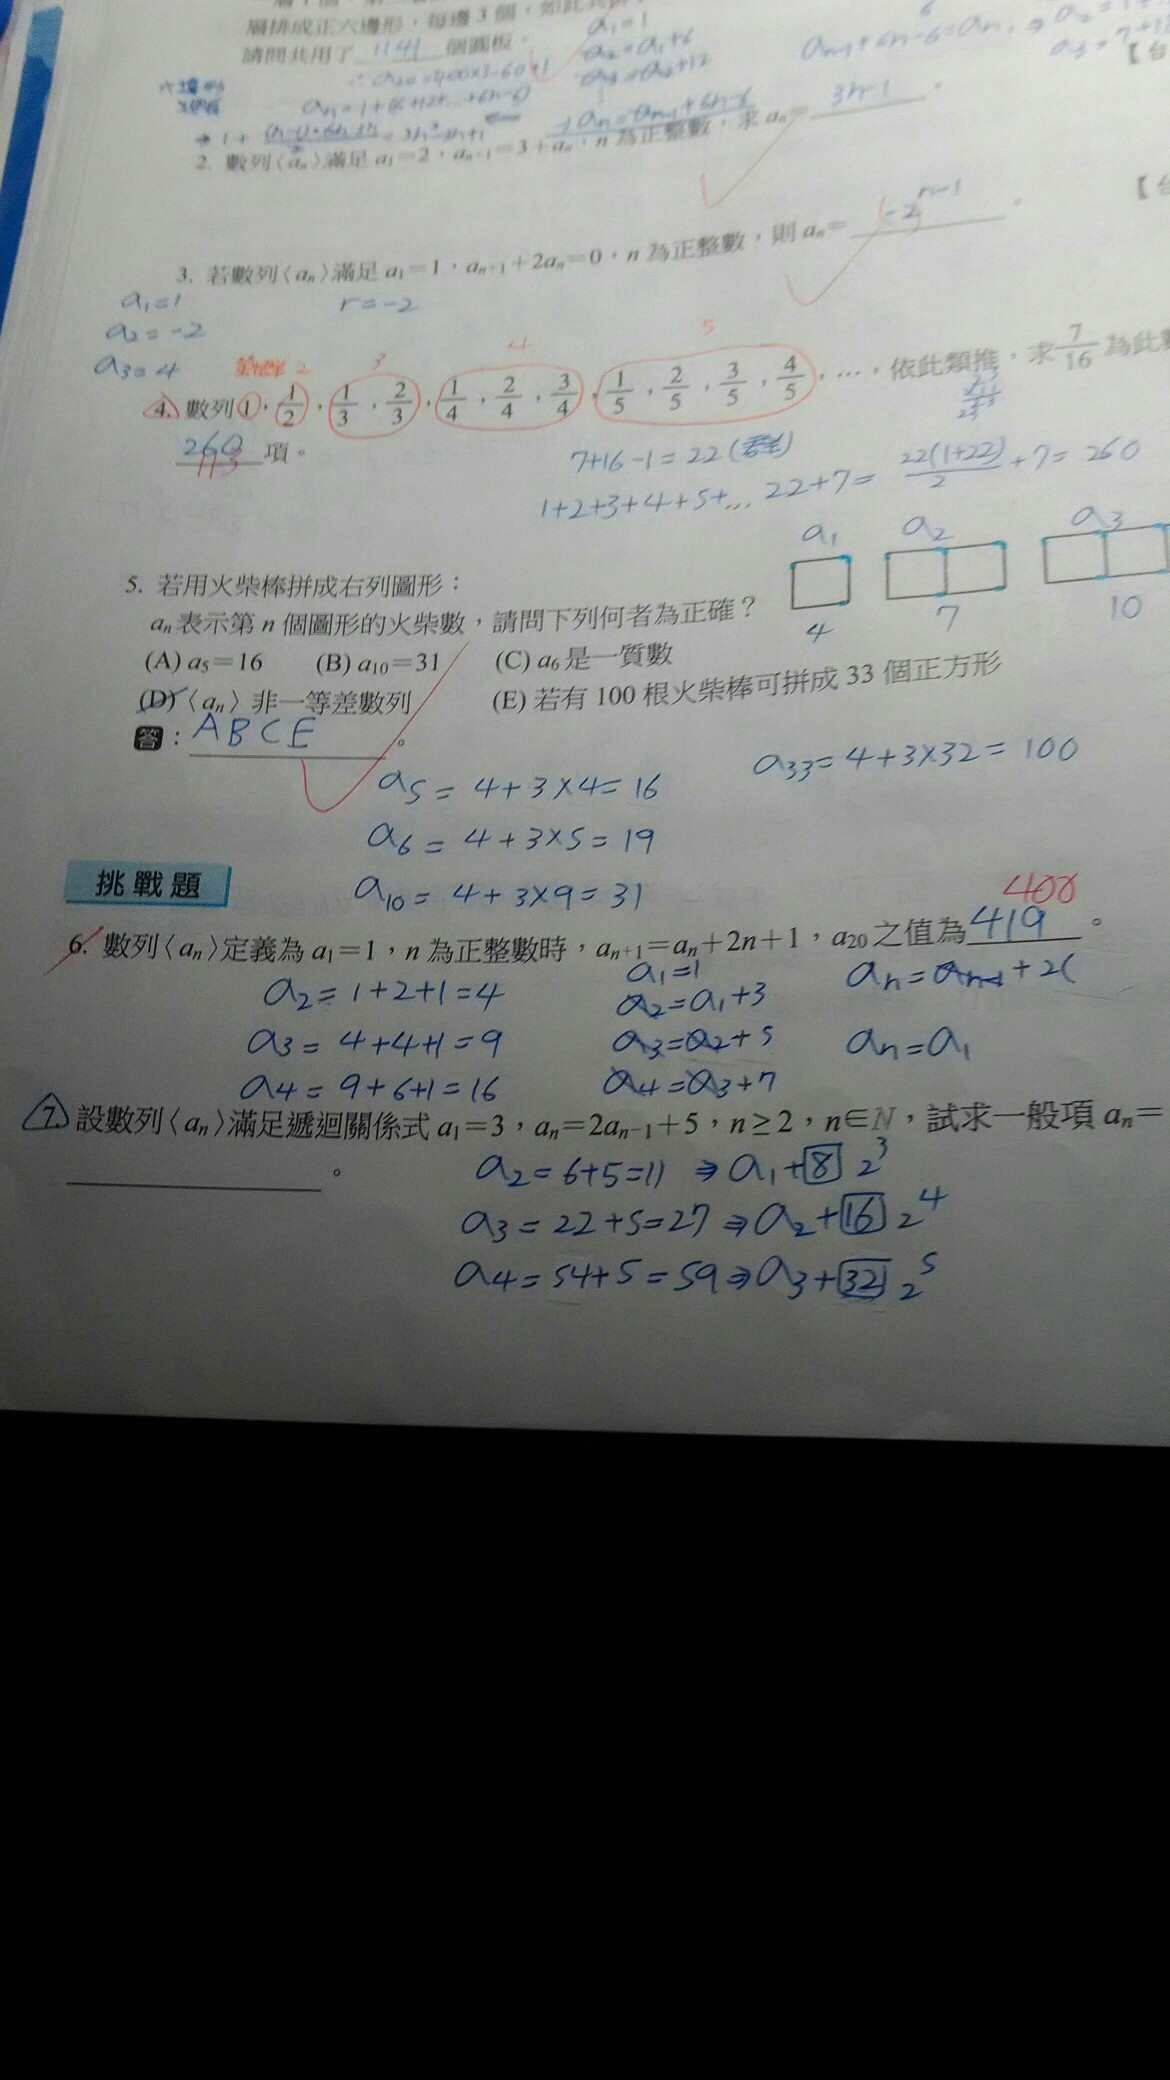 層排成正六邊形，每邊3個，如此共排
請問共用了 1141 個圓板。
a₁=1
a₂=a₁+6
a₃=a₂+12
∴a₂₀=400×3-60+1
aₙ=1+(6+12+…+6n-6)
aₙ=aₙ₋₁+6n-6
2. 數列⟨aₙ⟩滿足 a₁=2，aₙ₊₁=3+aₙ，n 為正整數，求 aₙ= 3n-1 。
3. 若數列⟨aₙ⟩滿足 a₁=1，aₙ₊₁+2aₙ=0，n 為正整數，則 aₙ= (-2)ⁿ⁻¹ 。
a₁=1
r=-2
a₂=-2
a₃=4
2 3 4 5
4. 數列 1，1/2，1/3，2/3，1/4，2/4，3/4，1/5，2/5，3/5，4/5，…，依此類推，求 7/16 為此數
260 113 項。
7+16-1=22(群)
1+2+3+4+5+… 22+7= 22(1+22)/2 +7=260
a₁ a₂ a₃
4 7 10
5. 若用火柴棒拼成右列圖形：
aₙ 表示第 n 個圖形的火柴數，請問下列何者為正確？
(A) a₅=16 (B) a₁₀=31 (C) a₆ 是一質數
(D)⟨aₙ⟩ 非一等差數列 (E) 若有 100 根火柴棒可拼成 33 個正方形
答：ABCE 。
a₅=4+3×4=16
a₃₃=4+3×32=100
a₆=4+3×5=19
a₁₀=4+3×9=31
挑戰題
400
6. 數列⟨aₙ⟩定義為 a₁=1，n 為正整數時，aₙ₊₁=aₙ+2n+1，a₂₀ 之值為 419 。
a₂=1+2+1=4
a₃=4+4+1=9
a₄=9+6+1=16
a₁=1
a₂=a₁+3
a₃=a₂+5
a₄=a₃+7
aₙ=aₙ₋₁+2(
aₙ=a₁
7. 設數列⟨aₙ⟩滿足遞迴關係式 a₁=3，aₙ=2aₙ₋₁+5，n≥2，n∈N，試求一般項 aₙ=
。
a₂=6+5=11 ⇒ a₁+8 2³
a₃=22+5=27 ⇒ a₂+16 2⁴
a₄=54+5=59 ⇒ a₃+32 2⁵